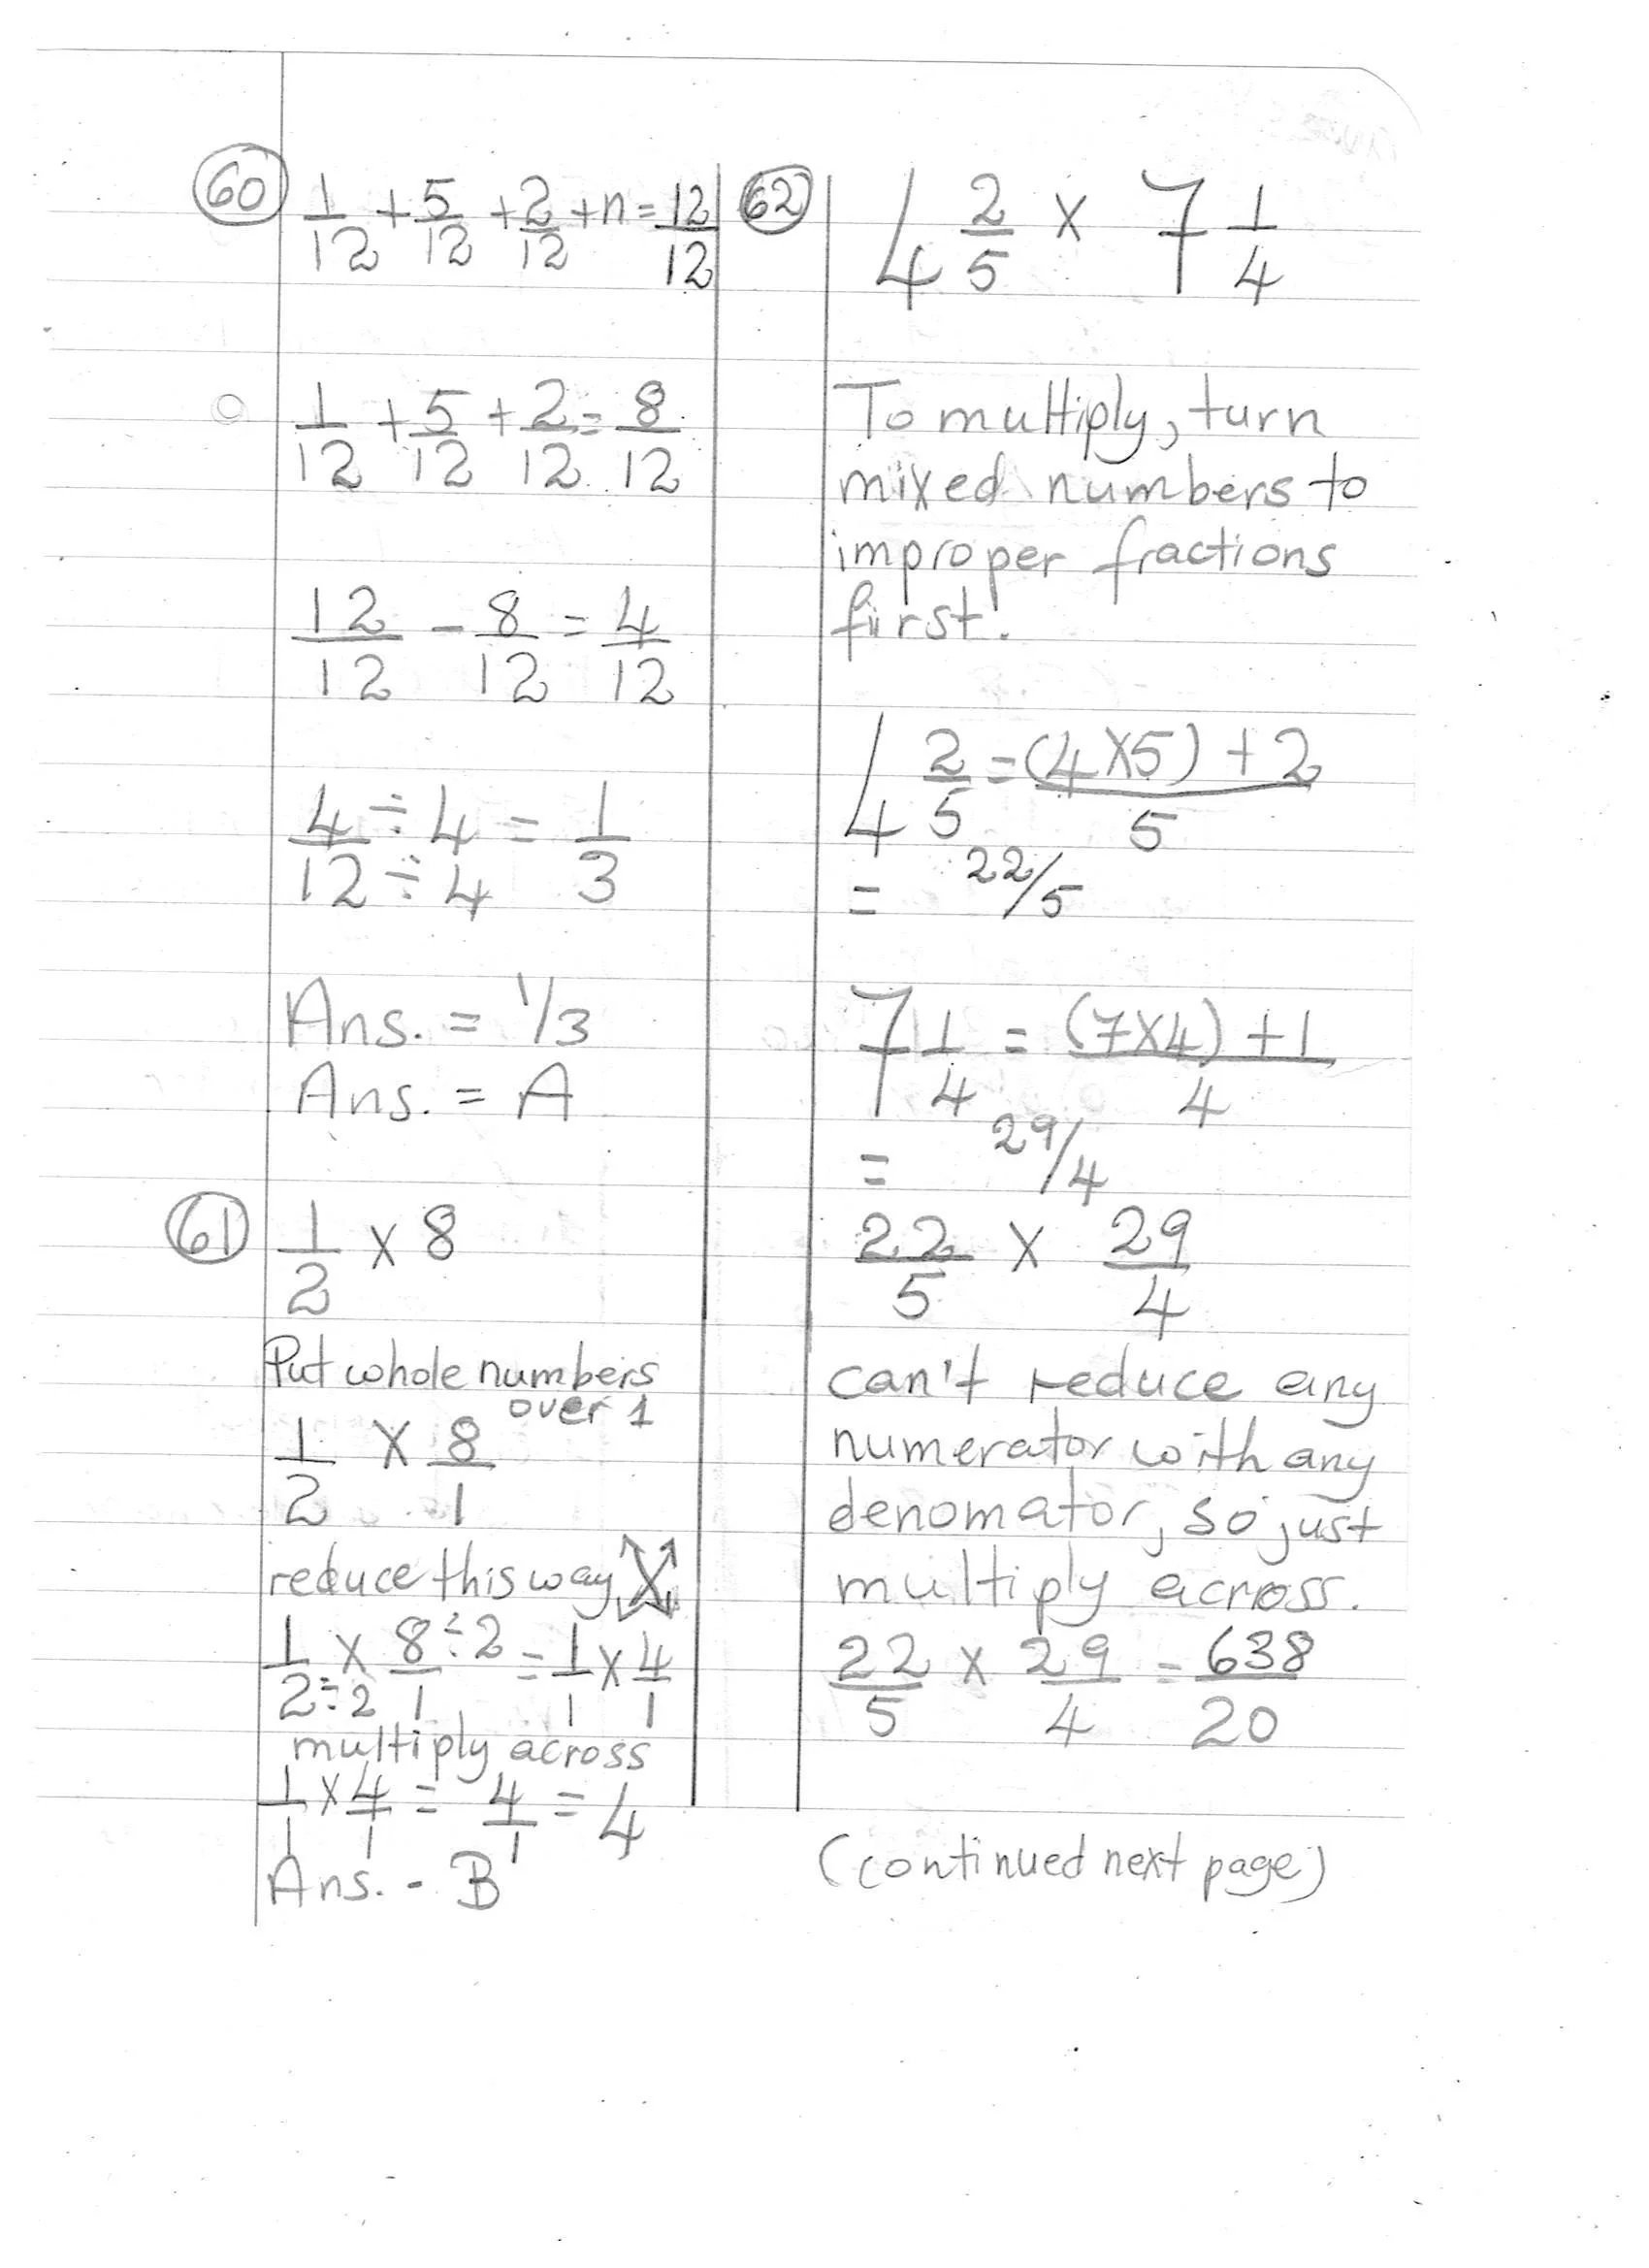 60
1/12 + 5/12 + 2/12 + n = 12/12
1/12 + 5/12 + 2/12 = 8/12
12/12 - 8/12 = 4/12
4 ÷ 4 / 12 ÷ 4 = 1/3
Ans. = 1/3
Ans. = A
61
1/2 x 8
Put whole numbers
over 1
1/2 x 8/1
reduce this way
1/2÷2 x 8÷2/1 = 1/1 x 4/1
multiply across
1/1 x 4/1 = 4/1 = 4
Ans. - B
62
4 2/5 x 7 1/4
To multiply, turn
mixed numbers to
improper fractions
first.
4 2/5 = (4x5) + 2 / 5
= 22/5
7 1/4 = (7x4) + 1 / 4
= 29/4
22/5 x 29/4
can't reduce any
numerator with any
denomator, so just
multiply across.
22/5 x 29/4 = 638/20
(continued next page)